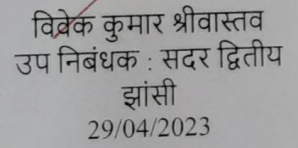 विवेक कुमार श्रीवास्तव
उप निबंधक : सदर द्वितीय
झांसी
29/04/2023